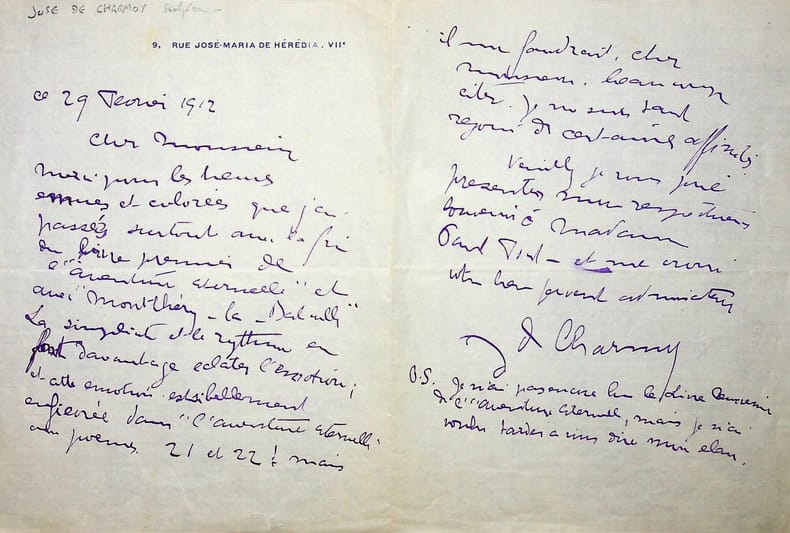 JOSE DE CHARMOY
9, RUE JOSÉ-MARIA DE HÉRÉDIA. VIIe
ce 29 Fevrier 1912
Cher Monsieur
Merci pour les heures
emues et colorées que j'ai
passées surtout avec la fin
du livre premier de
"l'aventure eternelle" et
avec "Montlhéry-la-Bataille"
La simplicité et le rythme en
font davantage eclater l'emotion;
et cette emotion est si bellement
enfievrée dans "l'aventure eternelle"
aux poemes 21 et 22! mais
il me faudrait, cher
monsieur, beaucoup
citer. Je me sens tant
rejoui de certaines affinités.
Veuillez je vous prie
presenter mon respectueux
souvenir à Madame
Paul Fort - et me croire
votre bien fervent admirateur
de Charmoy
P.S. Je n'ai pas encore lu le livre deuxieme
de l'"aventure eternelle, mais je n'ai
voulu tarder a vous dire mon elan.